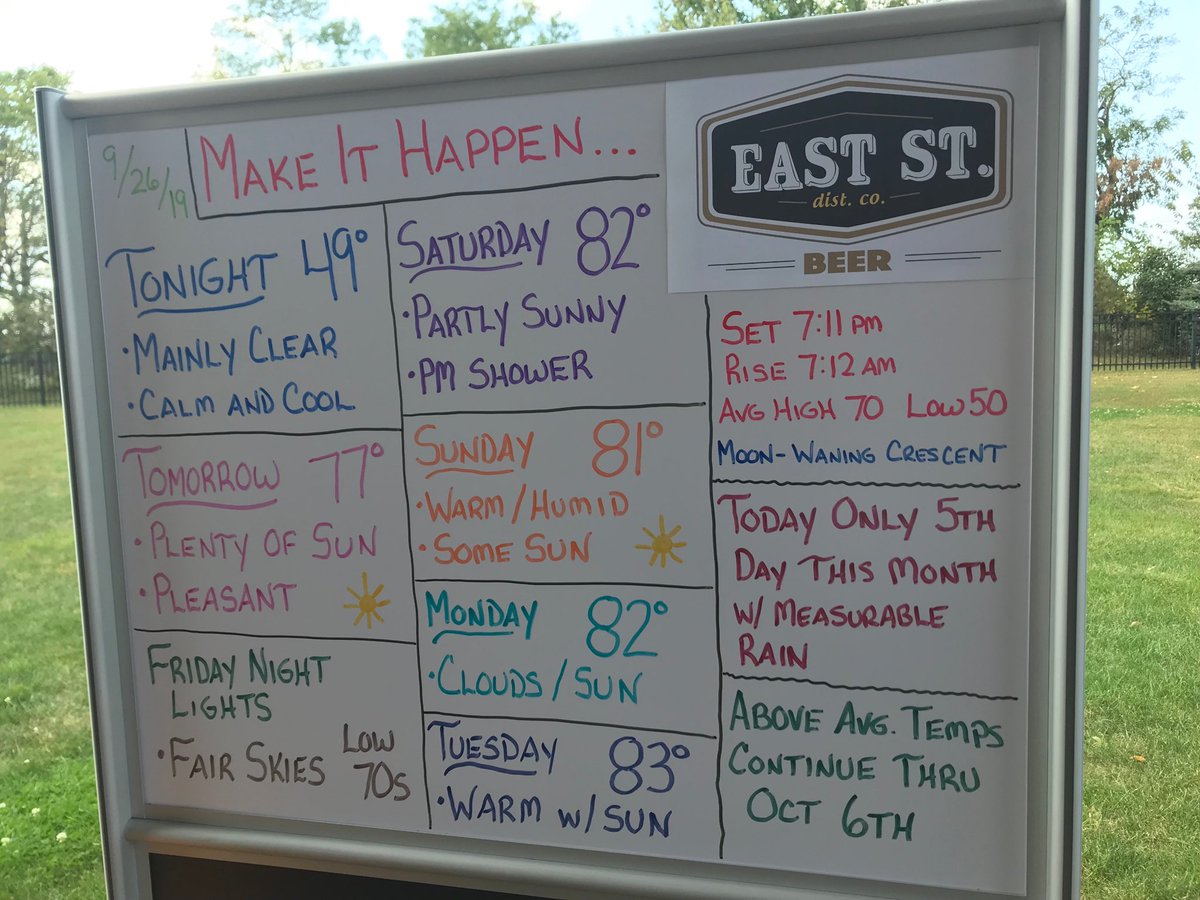 9/26/19
MAKE IT HAPPEN...
EAST ST.
dist. co.
BEER
TONIGHT 49°
• MAINLY CLEAR
• CALM AND COOL
TOMORROW 77°
• PLENTY OF SUN
• PLEASANT
FRIDAY NIGHT
LIGHTS
• FAIR SKIES LOW
70s
SATURDAY 82°
• PARTLY SUNNY
• PM SHOWER
SUNDAY 81°
• WARM/HUMID
• SOME SUN
MONDAY 82°
• CLOUDS/SUN
TUESDAY 83°
• WARM W/SUN
SET 7:11 PM
RISE 7:12 AM
AVG HIGH 70 LOW 50
MOON-WANING CRESCENT
TODAY ONLY 5TH
DAY THIS MONTH
W/ MEASURABLE
RAIN
ABOVE AVG. TEMPS
CONTINUE THRU
OCT 6TH